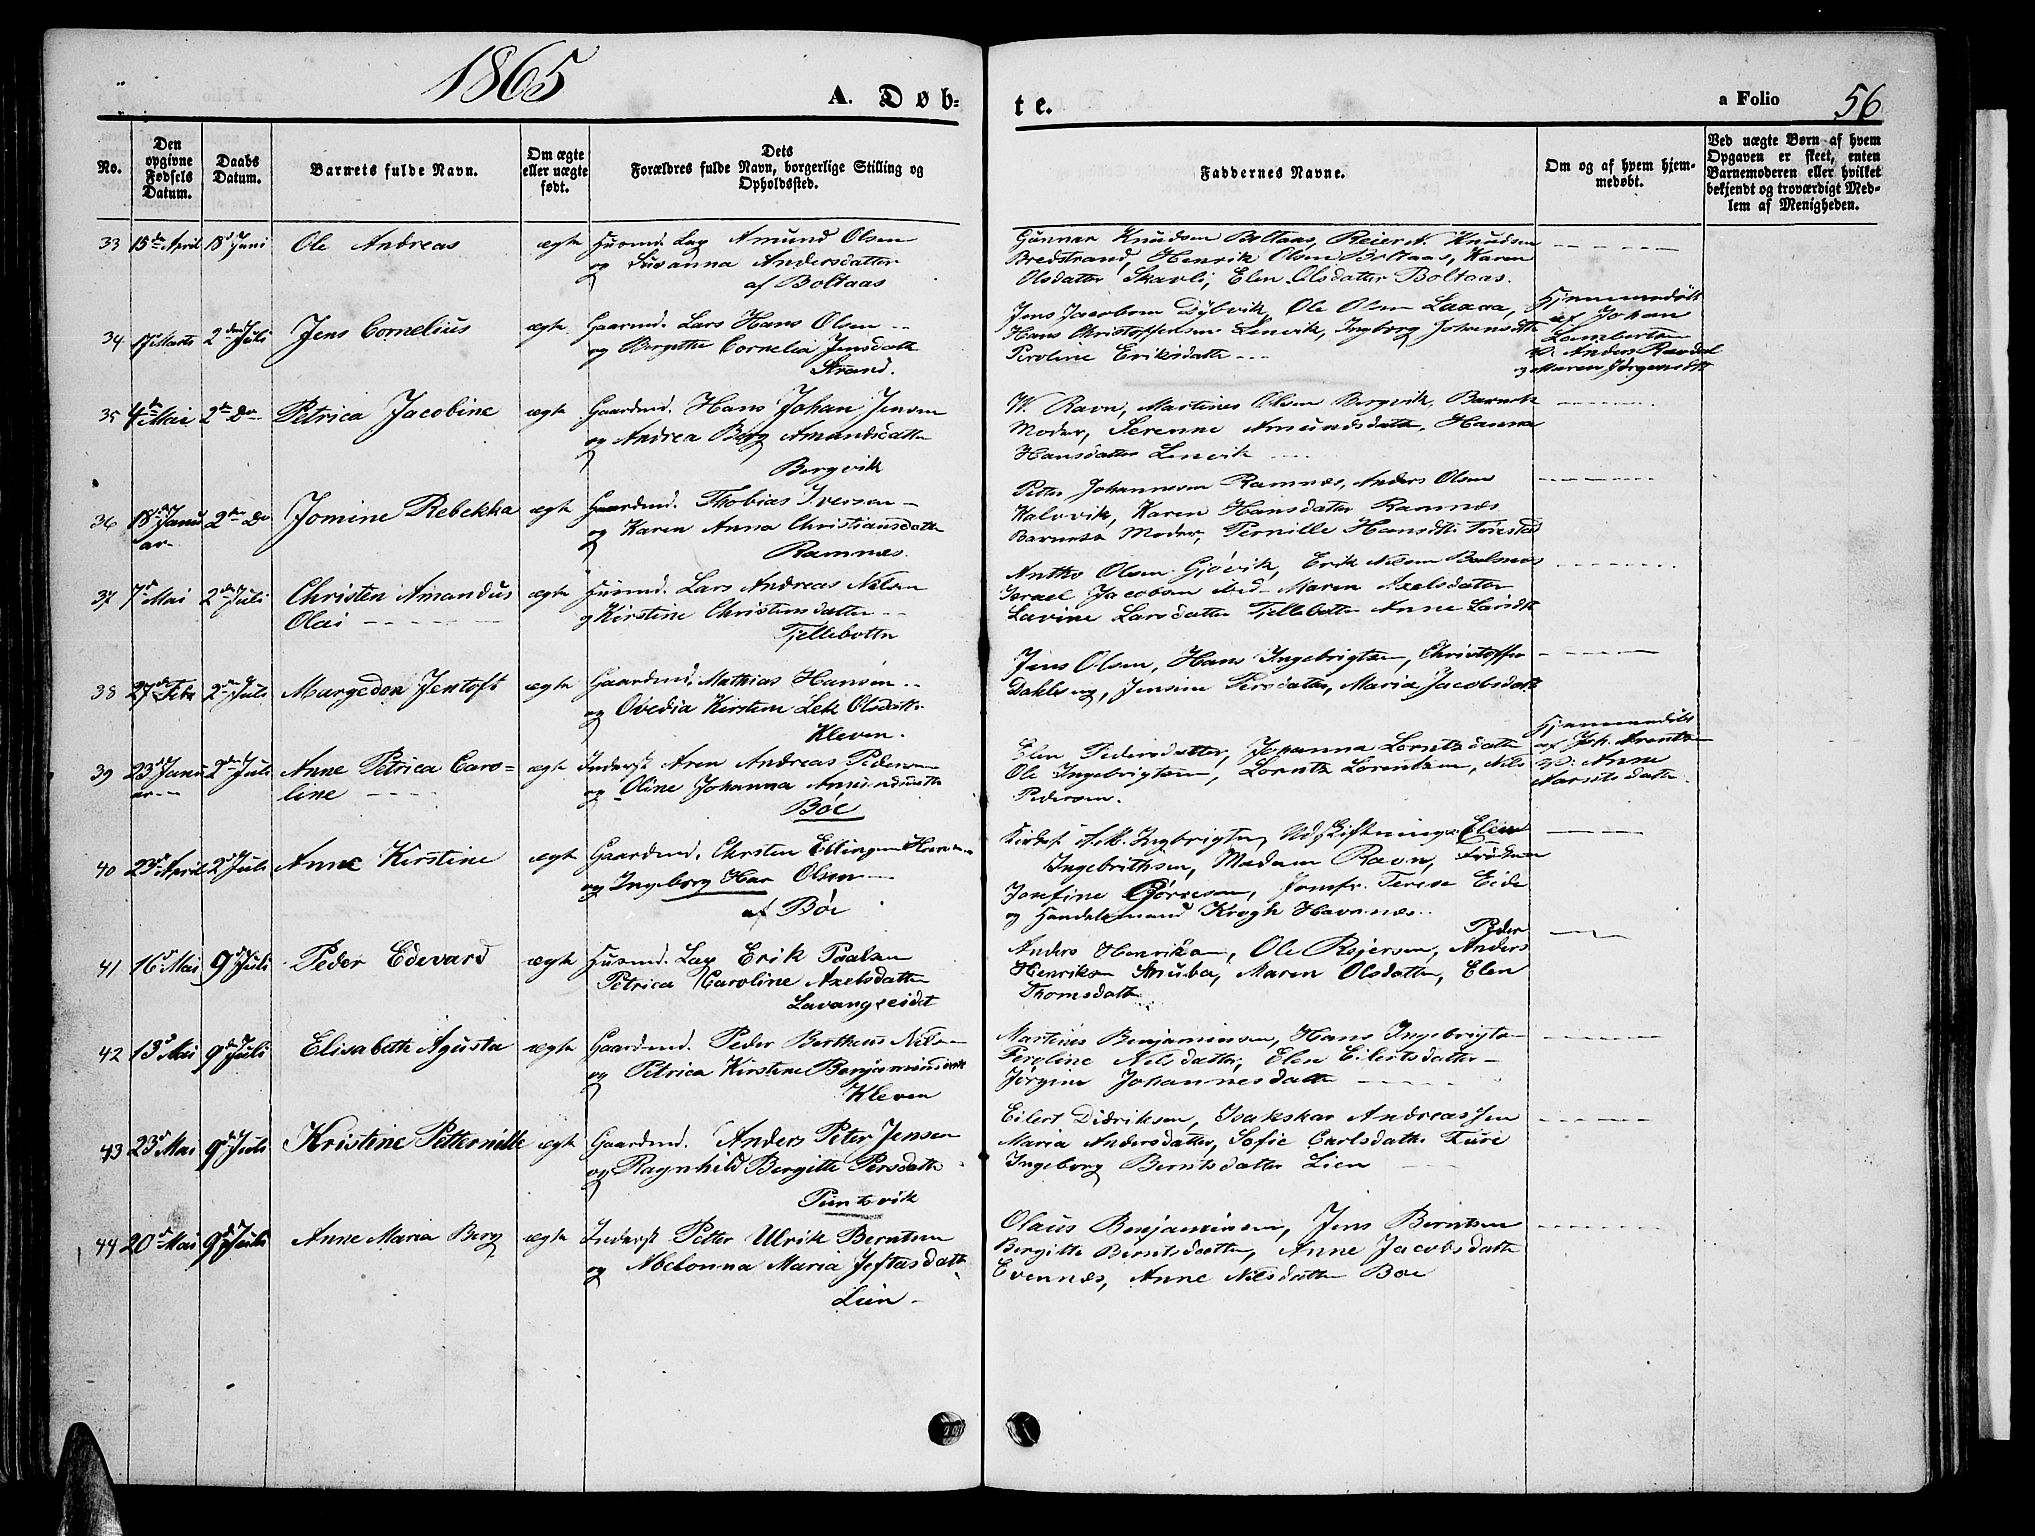 1865
A. Døb-
te.
a Folio
56
No.
Den opgivne Fødsels Datum.
Daabs Datum.
Barnets fulde Navn.
Om ægte eller uægte født.
Dets Forældres fulde Navn, borgerlige Stilling og Opholdssted.
Faddernes Navne.
Om og af hvem hjemmedøbt.
Ved uægte Børn af hvem Opgaven er skeet, enten Barnemoderen eller hvilket bekjendt og troværdigt Medlem af Menigheden.
33 15de April 18de Juni Ole Andreas ægte Husmd. Lap Amund Olsen
og Susanna Andersdatter
af Boltaas
Gunnar Knudsen Boltaas, Reier N. Knudsen
Bredstrand, Henrik Olsen Boltaas, Karen
Olsdatter Skavli, Elen Olsdatter Boltaas.
34 Marts 2den Juli Jens Cornelius ægte Gaarmd. Lars Hans Olsen
og Birgitte Cornelia Jensdatt
Strand.
Jens Jacobsen Dybvik, Ole Olsen Laxaa,
Hans Christoffersen Lenvik, Ingborg Johansdtt
Peroline Eriksdatte
Hjemmedøbt
af Johan
Lambertsen
W. Anders Ravdal
og Maren Jørgensdtt
35 4de Mai 2den Do Petrica Jacobine ægte Gaardmd. Hans Johan Jensen
og Andrea Berg Amundsdatter
Bergvik
W. Ravn, Martines Olsen Bergvik, Barnets
Moder, Serenne Amundsdatte, Hanna
Hansdatter Lenvik
36 18de Janu 2den Do Jomine Rebekka ægte Gaardmd. Thobias Iversen
ar
og Karen Anna Christiansdatte
Ramnæs.
Petter Johannesen Ramnæs, Anders Olsen
Kalvvik, Karen Hansdatter Ramnæs
Barnets Moder, Pernille Hansdtt.
37 7de Mai 2den Juli Christen Amandus ægte Husmd. Lars Andreas Nilsen
Olai
og Kirstine Christensdatter
Tjellebottn
Olsen Gjøvik, Erik Nilsen Balsnes
Israel Jacobsen ibid Maren Axelsdatter
Lavine Larsdatter Tjellebottn Anne Larsdtt
38 27de Febr 2den Juli Margedon Jentoft ægte Gaardmd. Mathias Hansen
og Ovedia Kirstene Olsdatt.
Kleven.
Jens Olsen, Hans Ingebrigtsen, Christoffer
Jensine Persdatter, Maria Jacobsdatt
39 23de Janu 2den Juli Anne Petrica Caro= ægte Inderst Aren Andreas Pedersen
ar
line
og Oline Johanna Amundsdatte
Bøe
Elen Pedersdatter, Johanna Lorntsdatte
Ole Ingebrigtsen, Lorntz Lorentsen, Nils
Pedersen.
Hjemmedøbt
af Joh. Arentsen
W. Anne
Aarntsdatte.
40 23de April 2de Juli Anne Kirstine ægte Gaardmd. Chrsten Ellingsen
og Ingeborg Han Olsen
af Bøe
Ingbrigtsen, Elen
Ingebrithsen, Madam Ravn, Frøken
Josefine Jomfr. Terese Eide
og Handelsmand Krogh Havnnæs.
41 16de Mai 9de Juli Peder Edevard ægte Husmd. Lap Erik Paalsen
Petrica Karoline Axelsdatter
Lavangseidet
Peder
Anders Henriksen, Ole Rejersen, Anders
Henriksen Snuba, Maren Olsdatter, Elen
Thomsdatte
42 13de Mai 9de Juli Elisabette Agusta ægte Gaardmd. Peder Bertheus Nilsen
og Petrica Kirstine Benjaminsdatt
Kleven
Martines Benjaminsen, Hans Ingebrigtsen
Peroline Nilsdatter, Elen Eilertsdatter
Jørgine Johannesdatte
43 23de Mai 9de Juli Kristine Petternille ægte Gaardmd. Anders Peter Jensen
og Ragnhild Bergitte Persdatte
Tuntsvik
Eilert Didriksen, Isakskar Andreassen
Maria Andersdatter, Sofie Carlsdatte
Ingeborg Berntsdatter Lien
44 20de Mai 9de Juli Anne Maria Berg ægte Inderst Petter Ulrik Berntsen
og Abelonna Maria Jeftasdatte
Lien
Olaus Benjaminsen, Jens Berntsen
Bergitte Berntsdatte, Anne Jacobsdatte
Evennæs, Anne Nilsdatte Boe